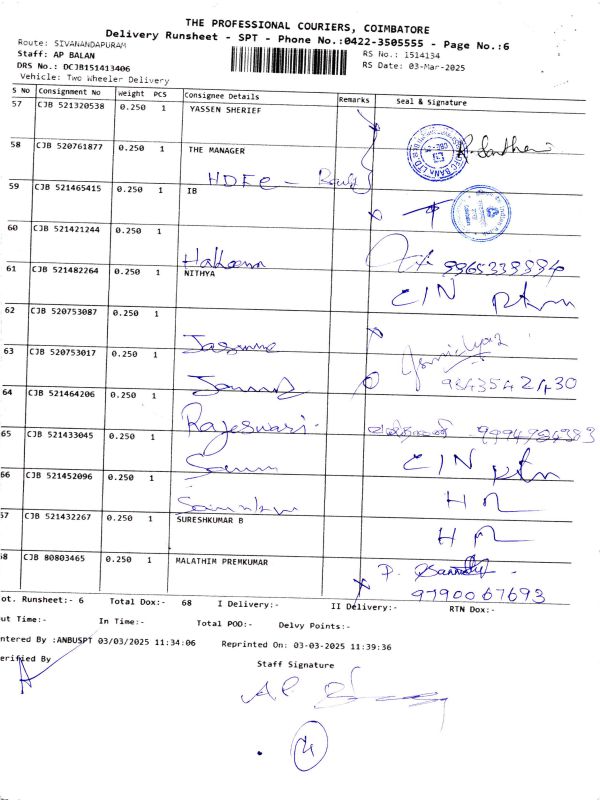 THE PROFESSIONAL COURIERS, COIMBATORE
Delivery Runsheet - SPT - Phone No.:0422-3505555 - Page No.:6
Route: SIVANANDAPURAM
RS No.: 1514134
Staff: AP BALAN
RS Date: 03-Mar-2025
DRS No.: DCJB151413406
Vehicle: Two Wheeler Delivery
S No Consignment No Weight PCS Consignee Details Remarks Seal & Signature
57 CJB 521320538 0.250 1 YASSEN SHERIEF
58 CJB 520761877 0.250 1 THE MANAGER
HDFC -
59 CJB 521465415 0.250 1 IB
60 CJB 521421244 0.250 1
61 CJB 521482264 0.250 1 NITHYA
CIN Rtn
62 CJB 520753087 0.250 1
63 CJB 520753017 0.250 1
9843542430
64 CJB 521464206 0.250 1
Rajeswari.
65 CJB 521433045 0.250 1
CIN Rtn
66 CJB 521452096 0.250 1
67 CJB 521432267 0.250 1 SURESHKUMAR B
68 CJB 80803465 0.250 1 MALATHIM PREMKUMAR
P.
9790067693
ot. Runsheet:- 6 Total Dox:- 68 I Delivery:- II Delivery:- RTN Dox:-
ut Time:- In Time:- Total POD:- Delvy Points:-
ntered By :ANBUSPT 03/03/2025 11:34:06 Reprinted On: 03-03-2025 11:39:36
erified By
Staff Signature
AP
4